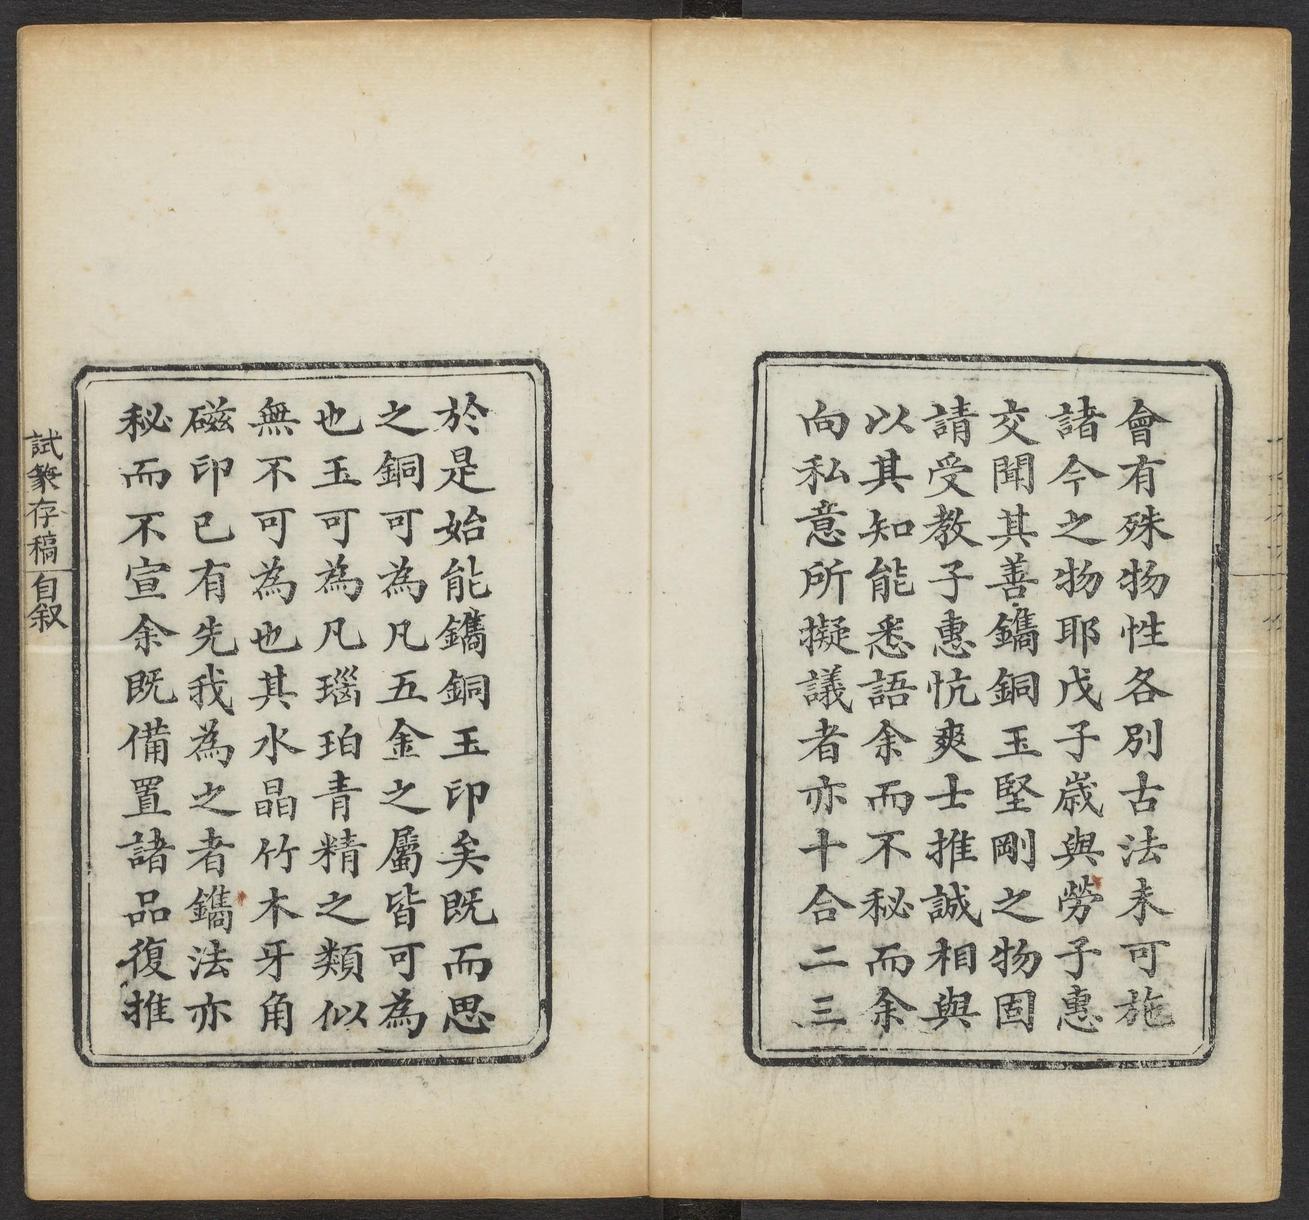 會有殊物性各別古法未可施
諸今之物耶戊子歲與勞子惠
交聞其善鐫銅玉堅剛之物固
請受教子惠忼爽士推誠相與
以其知能悉語余而不秘而余
向私意所擬議者亦十合二三
於是始能鐫銅玉印矣既而思
之銅可為凡五金之屬皆可為
也玉可為凡瑙珀青精之類似
無不可為也其水晶竹木牙角
磁印已有先我為之者鐫法亦
秘而不宣余既備置諸品復推
試篆存稿 自叙